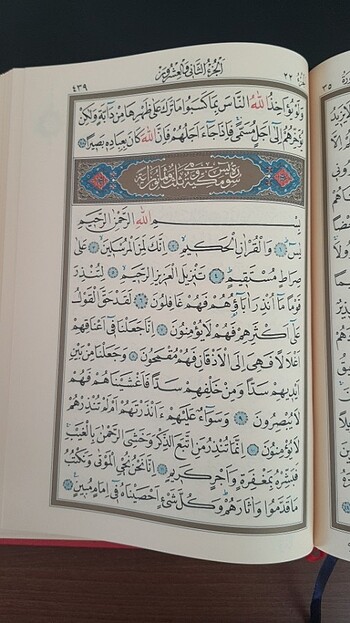 الجزء الثاني والعشرون
٤٣٩
٢٢
٣٥
وَلَوْ يُؤَاخِذُ اللّٰهُ النَّاسَ بِمَا كَسَبُوا مَا تَرَكَ عَلٰى ظَهْرِهَا مِنْ دَابَّةٍ وَلٰكِنْ
يُؤَخِّرُهُمْ اِلٰى اَجَلٍ مُسَمًّى فَاِذَا جَاءَ اَجَلُهُمْ فَاِنَّ اللّٰهَ كَانَ بِعِبَادِهِ بَصِيرًا
سورة يس مكية وهي ثلاث وثمانون آية
بِسْمِ اللّٰهِ الرَّحْمٰنِ الرَّحِيمِ
يٰسٓ ۝ وَالْقُرْاٰنِ الْحَكِيمِ ۝ اِنَّكَ لَمِنَ الْمُرْسَلِينَ ۝ عَلٰى
صِرَاطٍ مُسْتَقِيمٍ ۝ تَنْزِيلَ الْعَزِيزِ الرَّحِيمِ ۝ لِتُنْذِرَ
قَوْمًا مَا اُنْذِرَ اٰبَاؤُهُمْ فَهُمْ غَافِلُونَ ۝ لَقَدْ حَقَّ الْقَوْلُ
عَلٰى اَكْثَرِهِمْ فَهُمْ لَا يُؤْمِنُونَ ۝ اِنَّا جَعَلْنَا فِى اَعْنَاقِهِمْ
اَغْلَالًا فَهِىَ اِلَى الْاَذْقَانِ فَهُمْ مُقْمَحُونَ ۝ وَجَعَلْنَا مِنْ بَيْنِ
اَيْدِيهِمْ سَدًّا وَمِنْ خَلْفِهِمْ سَدًّا فَاَغْشَيْنَاهُمْ فَهُمْ
لَا يُبْصِرُونَ ۝ وَسَوَاءٌ عَلَيْهِمْ ءَاَنْذَرْتَهُمْ اَمْ لَمْ تُنْذِرْهُمْ
لَا يُؤْمِنُونَ ۝ اِنَّمَا تُنْذِرُ مَنِ اتَّبَعَ الذِّكْرَ وَخَشِىَ الرَّحْمٰنَ بِالْغَيْبِ
فَبَشِّرْهُ بِمَغْفِرَةٍ وَاَجْرٍ كَرِيمٍ ۝ اِنَّا نَحْنُ نُحْيِ الْمَوْتٰى وَنَكْتُبُ
مَا قَدَّمُوا وَاٰثَارَهُمْ وَكُلَّ شَىْءٍ اَحْصَيْنَاهُ فِى اِمَامٍ مُبِينٍ ۝